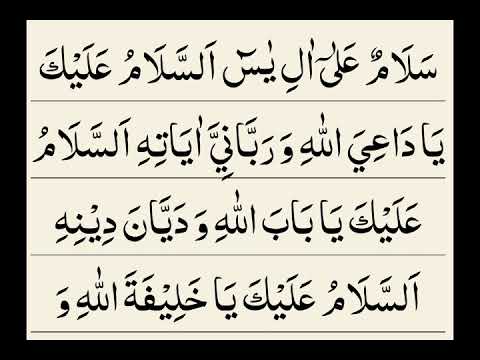 سَلَامٌ عَلٰٓى اٰلِ يٰسٓ اَلسَّلَامُ عَلَيْكَ
يَا دَاعِيَ اللهِ وَ رَبَّانِيَّ اٰيَاتِهِ اَلسَّلَامُ
عَلَيْكَ يَا بَابَ اللهِ وَ دَيَّانَ دِيْنِهِ
اَلسَّلَامُ عَلَيْكَ يَا خَلِيْفَةَ اللهِ وَ